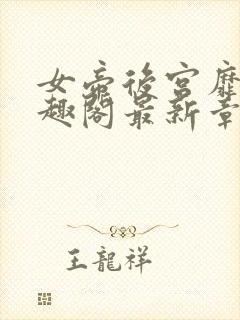 女帝後宮靡
趣閣最新章
王龍祥